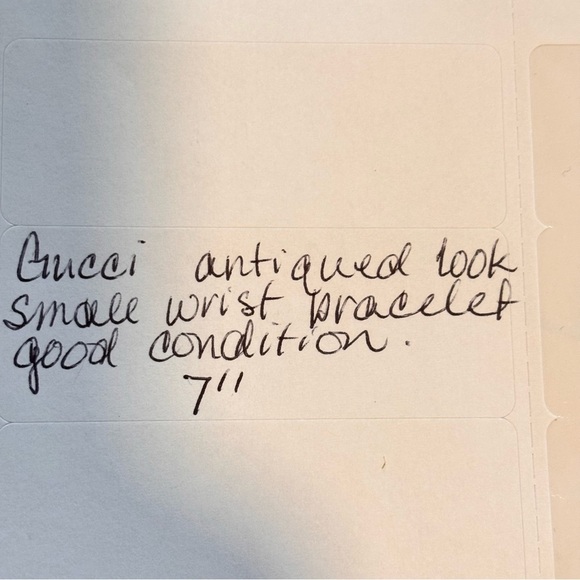 Gucci antiqued look
small wrist bracelet
good condition.
7"